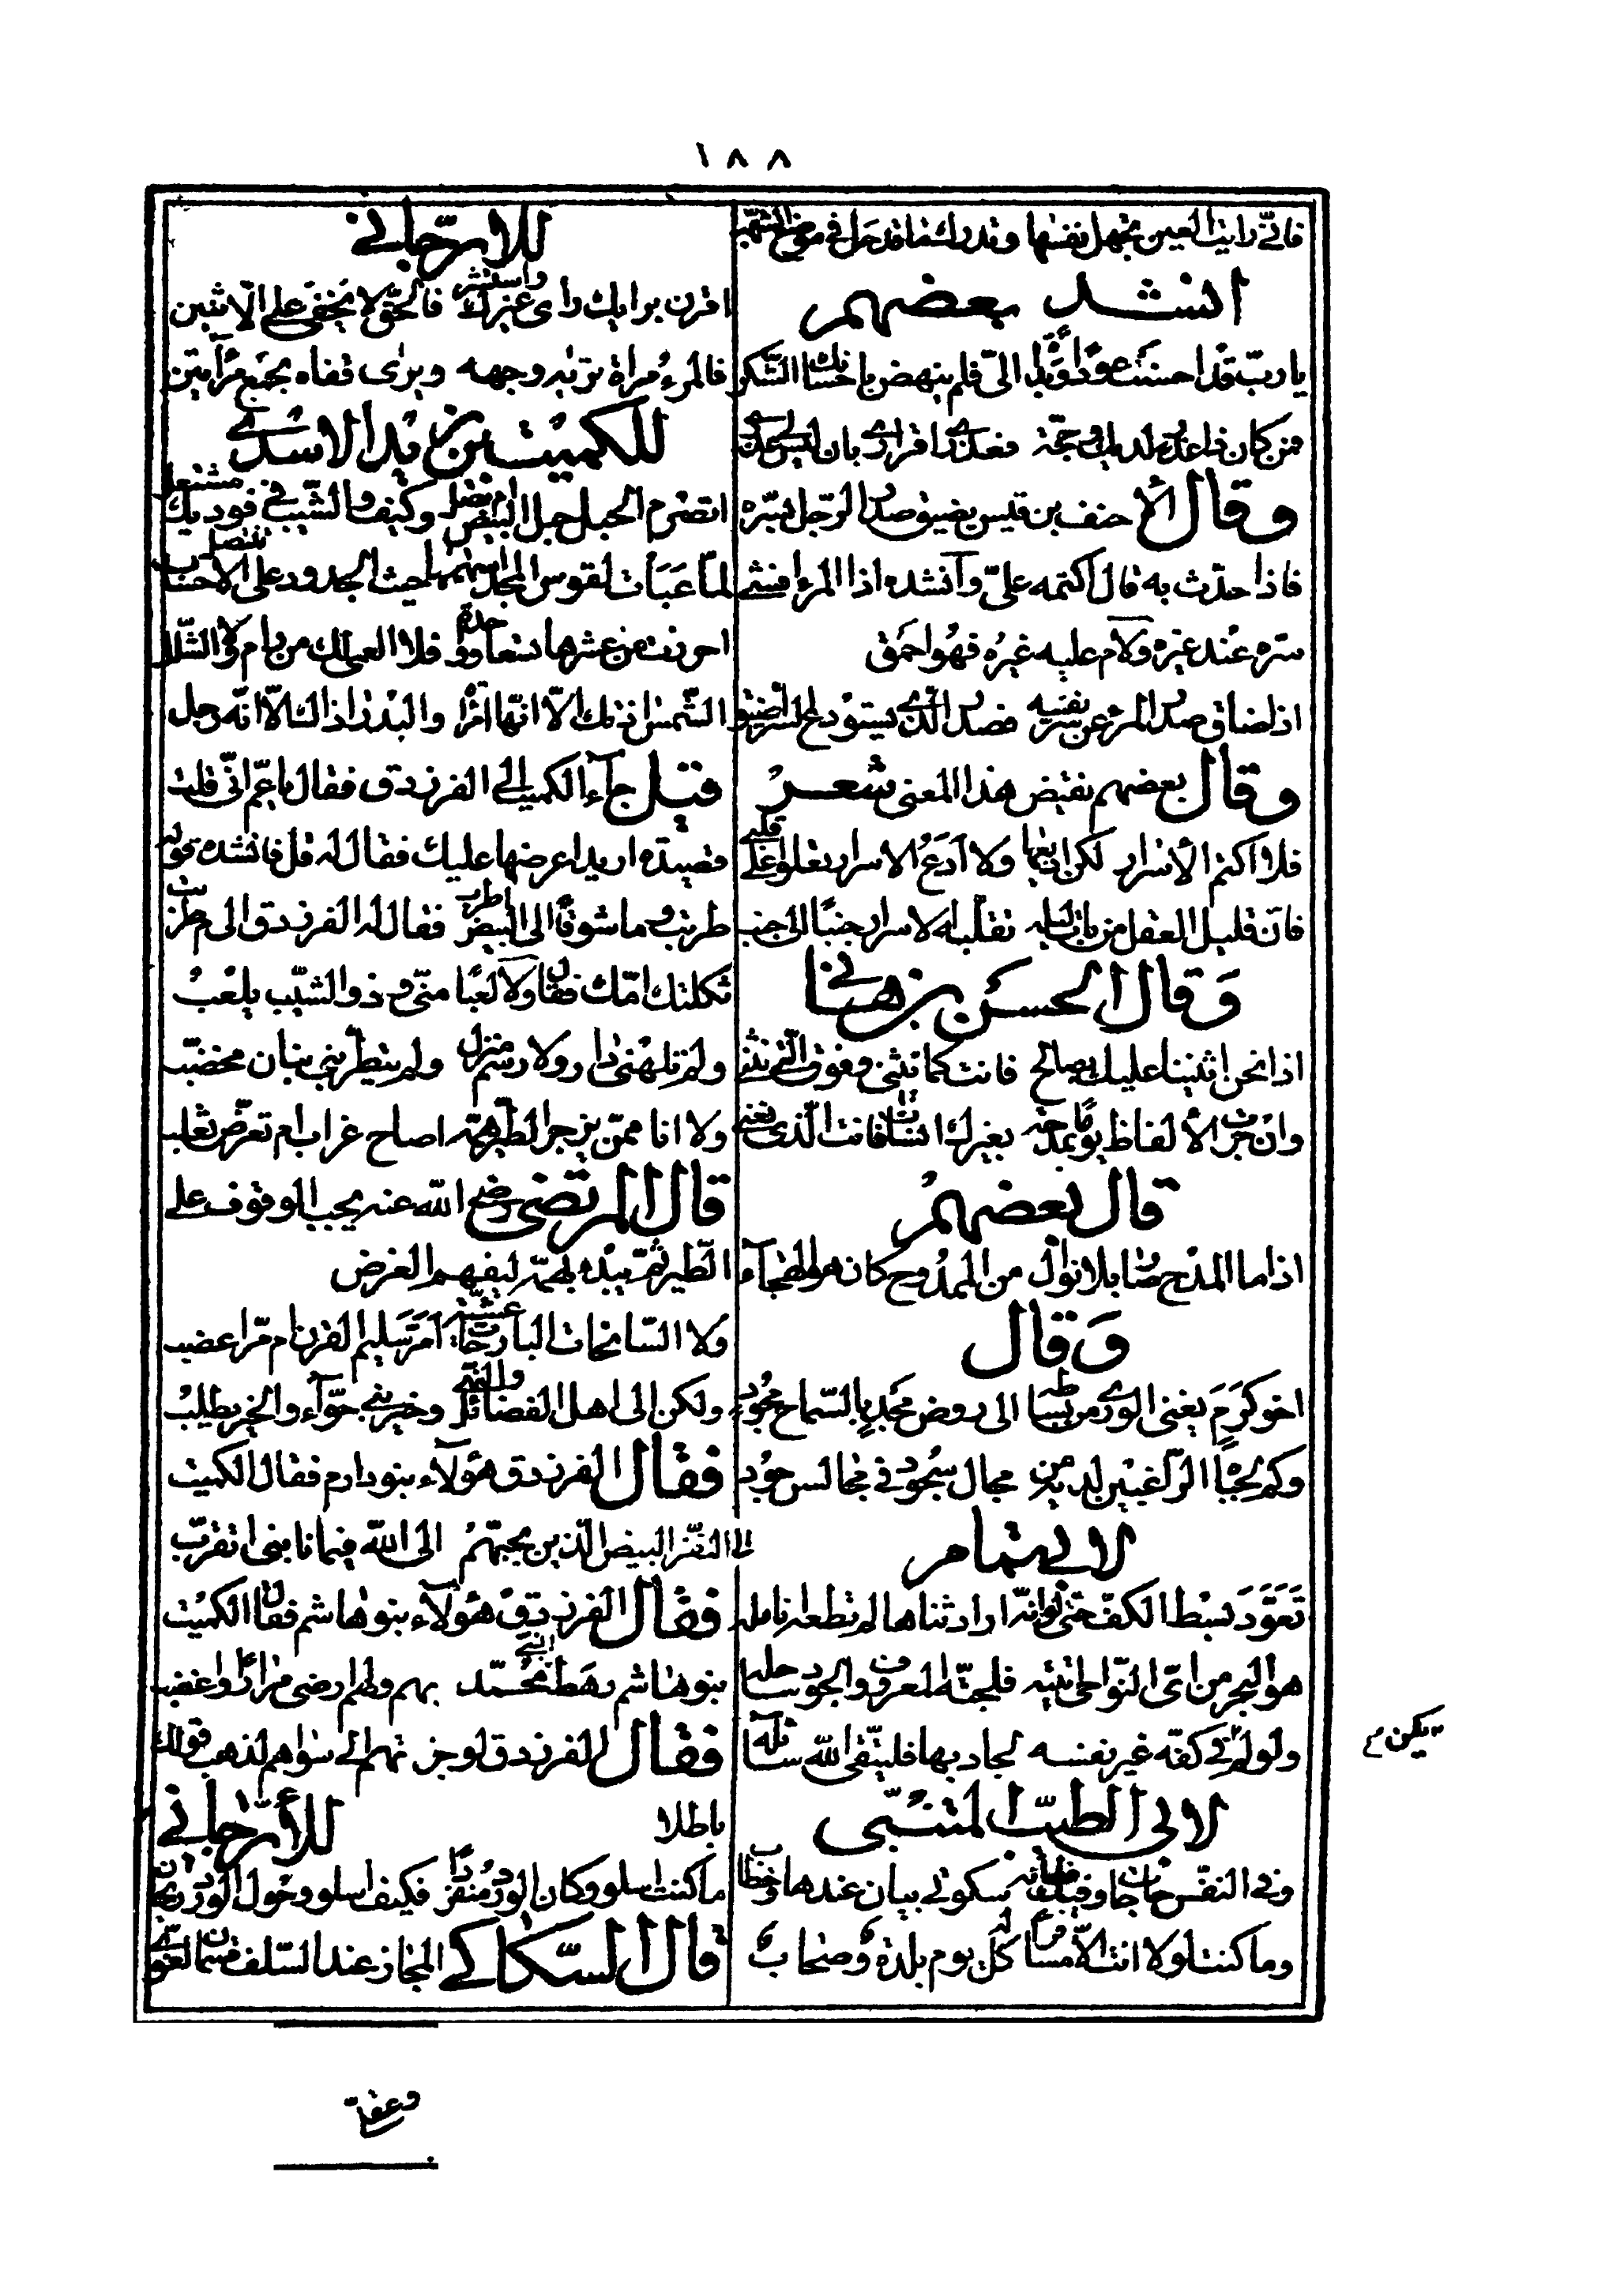 ١٨٨
فانّي رايت العين تجهل نفسها وتدرك ما قد حل في موضع الشهب
انشد بعضهم
يا ربّ قد احسنت عودًا وبدأة الىّ فلم ينهض باحسانك الشكر
فمن كان ذا عذر لديك وحجّة فعذري اقراري بان ليس لي عذر
وقال الأحنف بن قيس يضيق صدر الرجل بسرّه
فاذا حدّث به قال اكتمه علىّ وأنشده اذا المرء افشى
سرّه عند غيره ولام عليه غيره فهو احمق
اذا ضاق صدر المرء عن سرّ نفسه فصدر الذي يستودع السر اضيق
وقال بعضهم نقيض هذا المعنى شعر
فلا اكتم الأسرار لكن اذيعها ولا أدع الاسرار تغلوا على قلبي
فان قليل العقل من بات ليله تقلبه الاسرار جنبًا الى جنب
وقال الحسن بن هاني
اذا نحن اثنينا عليك بصالح فانت كما نثني وفوق الذي نثني
وان جرت الألفاظ يومًا بمدحة بغيرك انسانا فانت الذي نعني
قال بعضهم
اذا ما المدح صار بلا نوال من الممدوح كان هو الهجاء
وقال
اخو كرم يغني الورى من بساطه الى روض مجد بالسماح مجود
وكم لجباه الراغبين لديه من مجال سجود في مجالس جود
لابي تمام
تعوّد بسط الكفّ حتى لو انّه اراد ثناها لم تطعه انامله
هو البحر من اىّ النواحي اتيته فلجّته المعروف والجود ساحله
ولو لم يكن في كفّه غير نفسه لجاد بها فليتّق الله سائله
لابي الطيّب المتنبّى
وفي النفس حاجات وفيك فطانة سكوتي بيان عندها وخطاب
وما كنت لولا انت الّا مسافرا له كل يوم بلدة وصحاب
للارّجاني
اقرن برايك راى غيرك واستشر فالحقّ لا يخفى على الاثنين
فالمرء مرآة تريه وجهه ويرى قفاه بجمع مرآتين
للكميت بن زيد الاسدي
اتصرم الحبل حبل البيض ام تصل وكيف والشيب في فوديك مشتعل
لما عبأت لقوس المجد اسهمها حيث الجدود على الاحساب تنتضل
احرزت من عشرها تسعا وواحدة فلا العمى لك من رام ولا الشلل
الشمس ادّتك الّا انّها امرأة والبدر ادّاك الّا انّه رجل
قيل جاء الكميت الى الفرزدق فقال يا عمّ انّي قلت
قصيدة اريد اعرضها عليك فقال له قل فانشده قوله
طربت وما شوقًا الى البيض اطرب فقال له الفرزدق الى م طربت
ثكلتك امّك فقال ولا لعبًا منّي وذو الشيب يلعب
ولم تلهني دار ولا رسم منزل ولم يتطرّبني بنان مخضّب
ولا انا ممّن يزجر الطير همّه اصاح غراب ام تعرّض ثعلب
قال المرتضى رضي الله عنه يجب الوقوف على
الطير ثم يبدء بهمّه ليفهم الغرض
ولا السانحات البارحات عشيّة أمرّ سليم القرن ام مرّ اعضب
ولكن الى اهل الفضائل والنهى وخير بني حوّاء والخير يطلب
فقال الفرزدق هؤلاء بنو دارم فقال الكميت
الى النفر البيض الذين بحبّهم الى الله فيما نابني اتقرب
فقال الفرزدق هؤلاء بنو هاشم فقال الكميت
بنو هاشم رهط النبي محمّد بهم ولهم ارضى مرارًا واغضب
فقال الفرزدق لو جزتهم الى سواهم لذهب قولك
باطلا للأرّجاني
ما كنت اسلو وكان الورد منفردًا فكيف اسلو وحول الورد ريحان
قال السكّاكي المجاز عند السلف قسمان لغوي
يكن
وعقلي